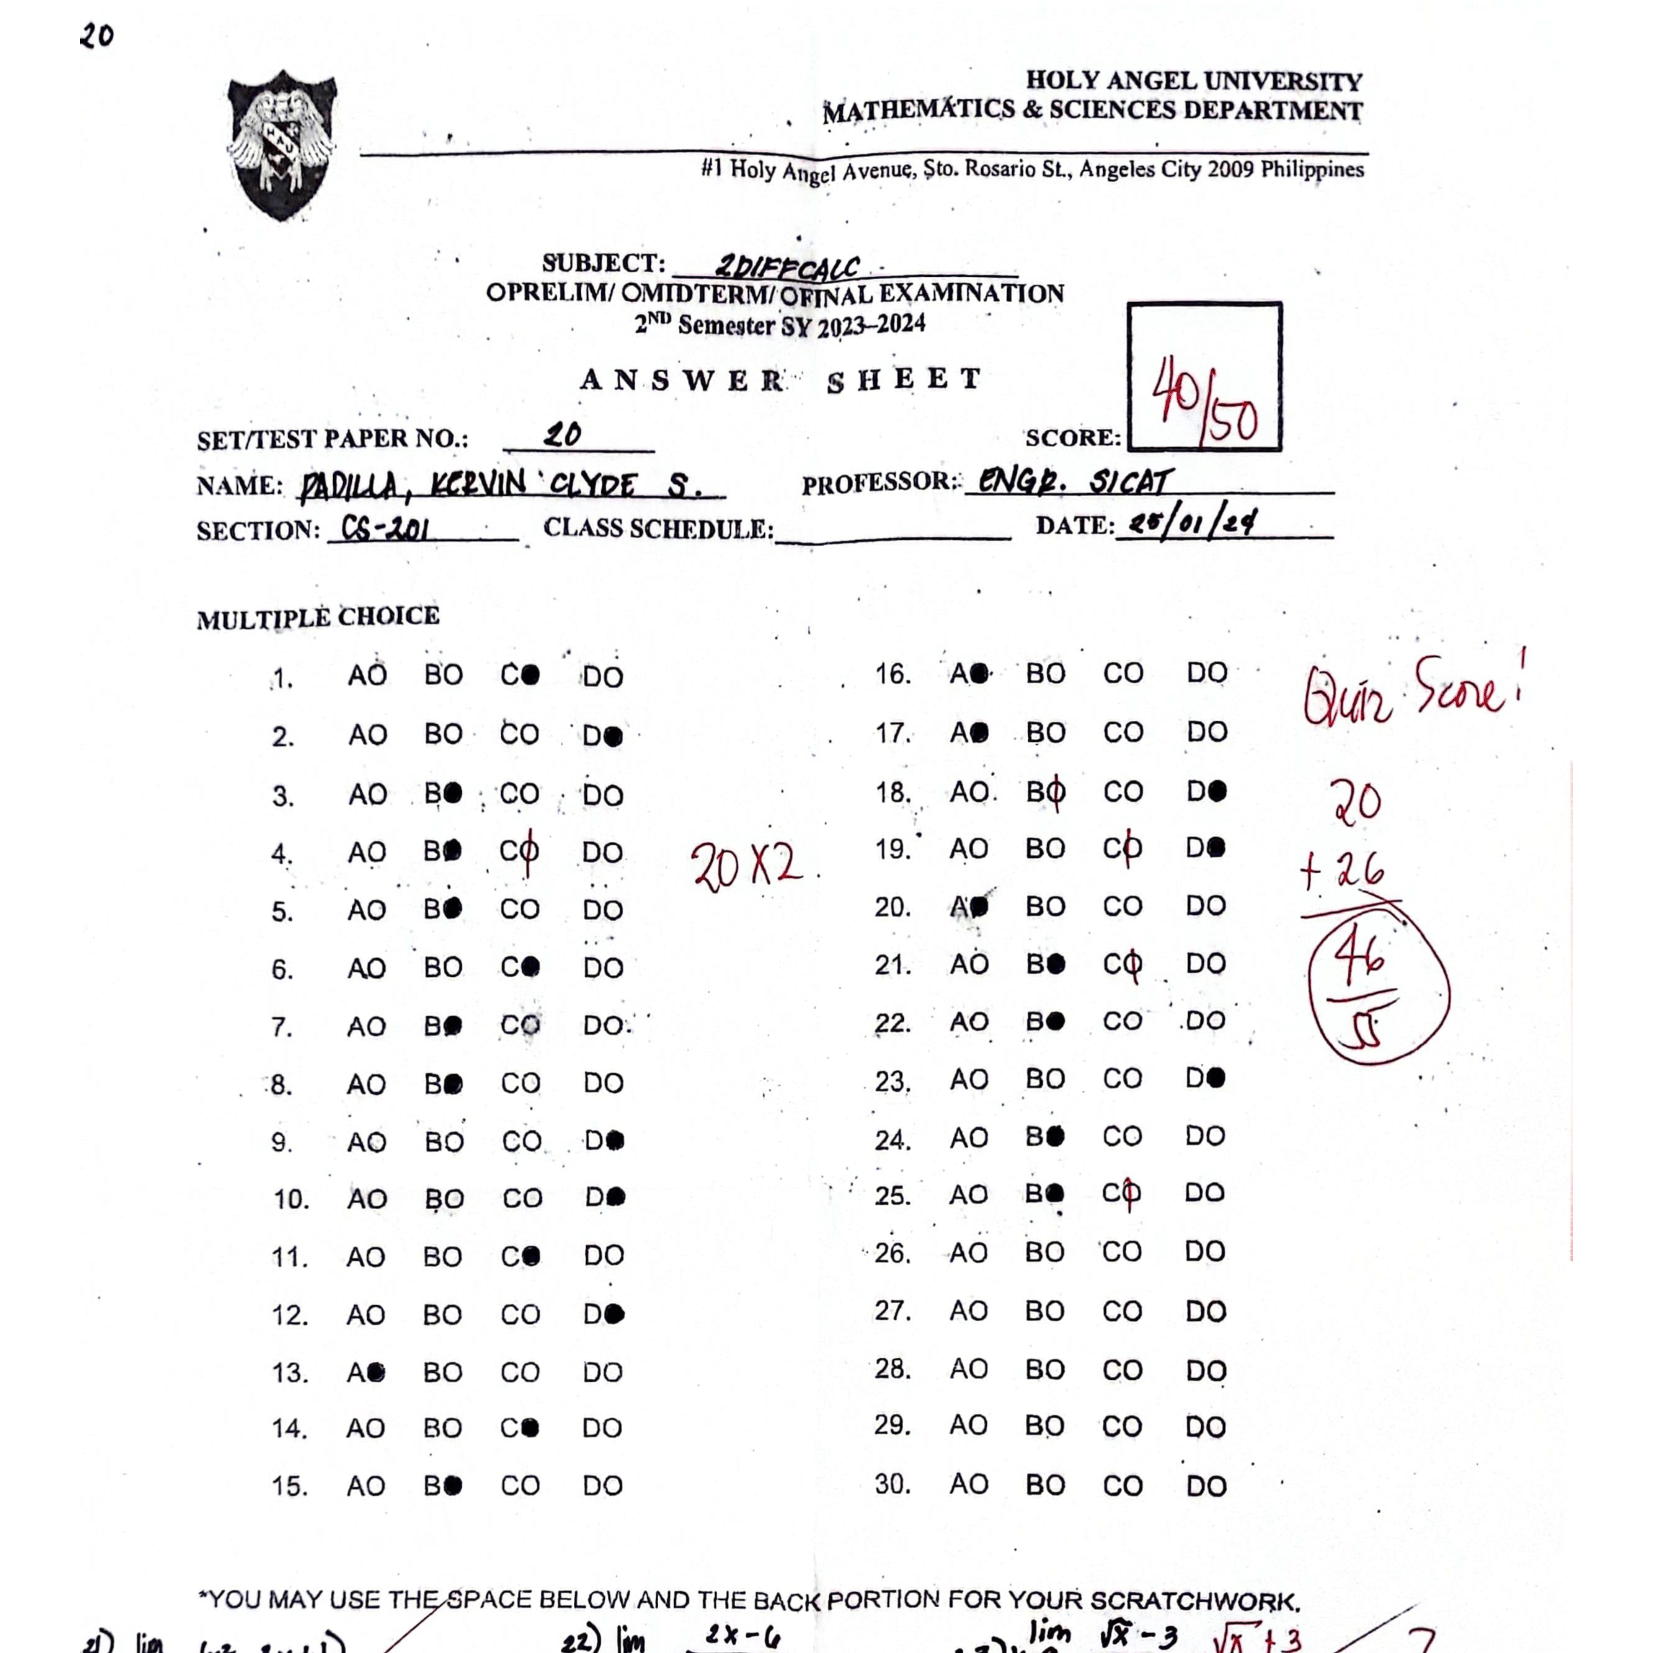 20
HOLY ANGEL UNIVERSITY
MATHEMATICS & SCIENCES DEPARTMENT
#1 Holy Angel Avenue, Sto. Rosario St., Angeles City 2009 Philippines
HAU
SUBJECT: 2DIFFCALC
OPRELIM/ OMIDTERM/ OFINAL EXAMINATION
2ND Semester SY 2023–2024
ANSWER SHEET
40/50
SET/TEST PAPER NO.: 20 SCORE:
NAME: PADILLA, KERVIN CLYDE S. PROFESSOR: ENGR. SICAT
SECTION: CS-201 CLASS SCHEDULE: DATE: 25/01/24
MULTIPLE CHOICE
1. AO BO C● DO
2. AO BO CO D●
3. AO B● CO DO
4. AO B● CO DO
5. AO B● CO DO
6. AO BO C● DO
7. AO B● CO DO
8. AO B● CO DO
9. AO BO CO D●
10. AO BO CO D●
11. AO BO C● DO
12. AO BO CO D●
13. A● BO CO DO
14. AO BO C● DO
15. AO B● CO DO
20X2.
16. A● BO CO DO
17. A● BO CO DO
18. AO BO CO D●
19. AO BO CO D●
20. A● BO CO DO
21. AO B● CO DO
22. AO B● CO DO
23. AO BO CO D●
24. AO B● CO DO
25. AO B● CO DO
26. AO BO CO DO
27. AO BO CO DO
28. AO BO CO DO
29. AO BO CO DO
30. AO BO CO DO
Quiz Score!
20
+ 26
46
55
*YOU MAY USE THE SPACE BELOW AND THE BACK PORTION FOR YOUR SCRATCHWORK.
21) lim 22) lim 2x-6 lim √x - 3 √x + 3